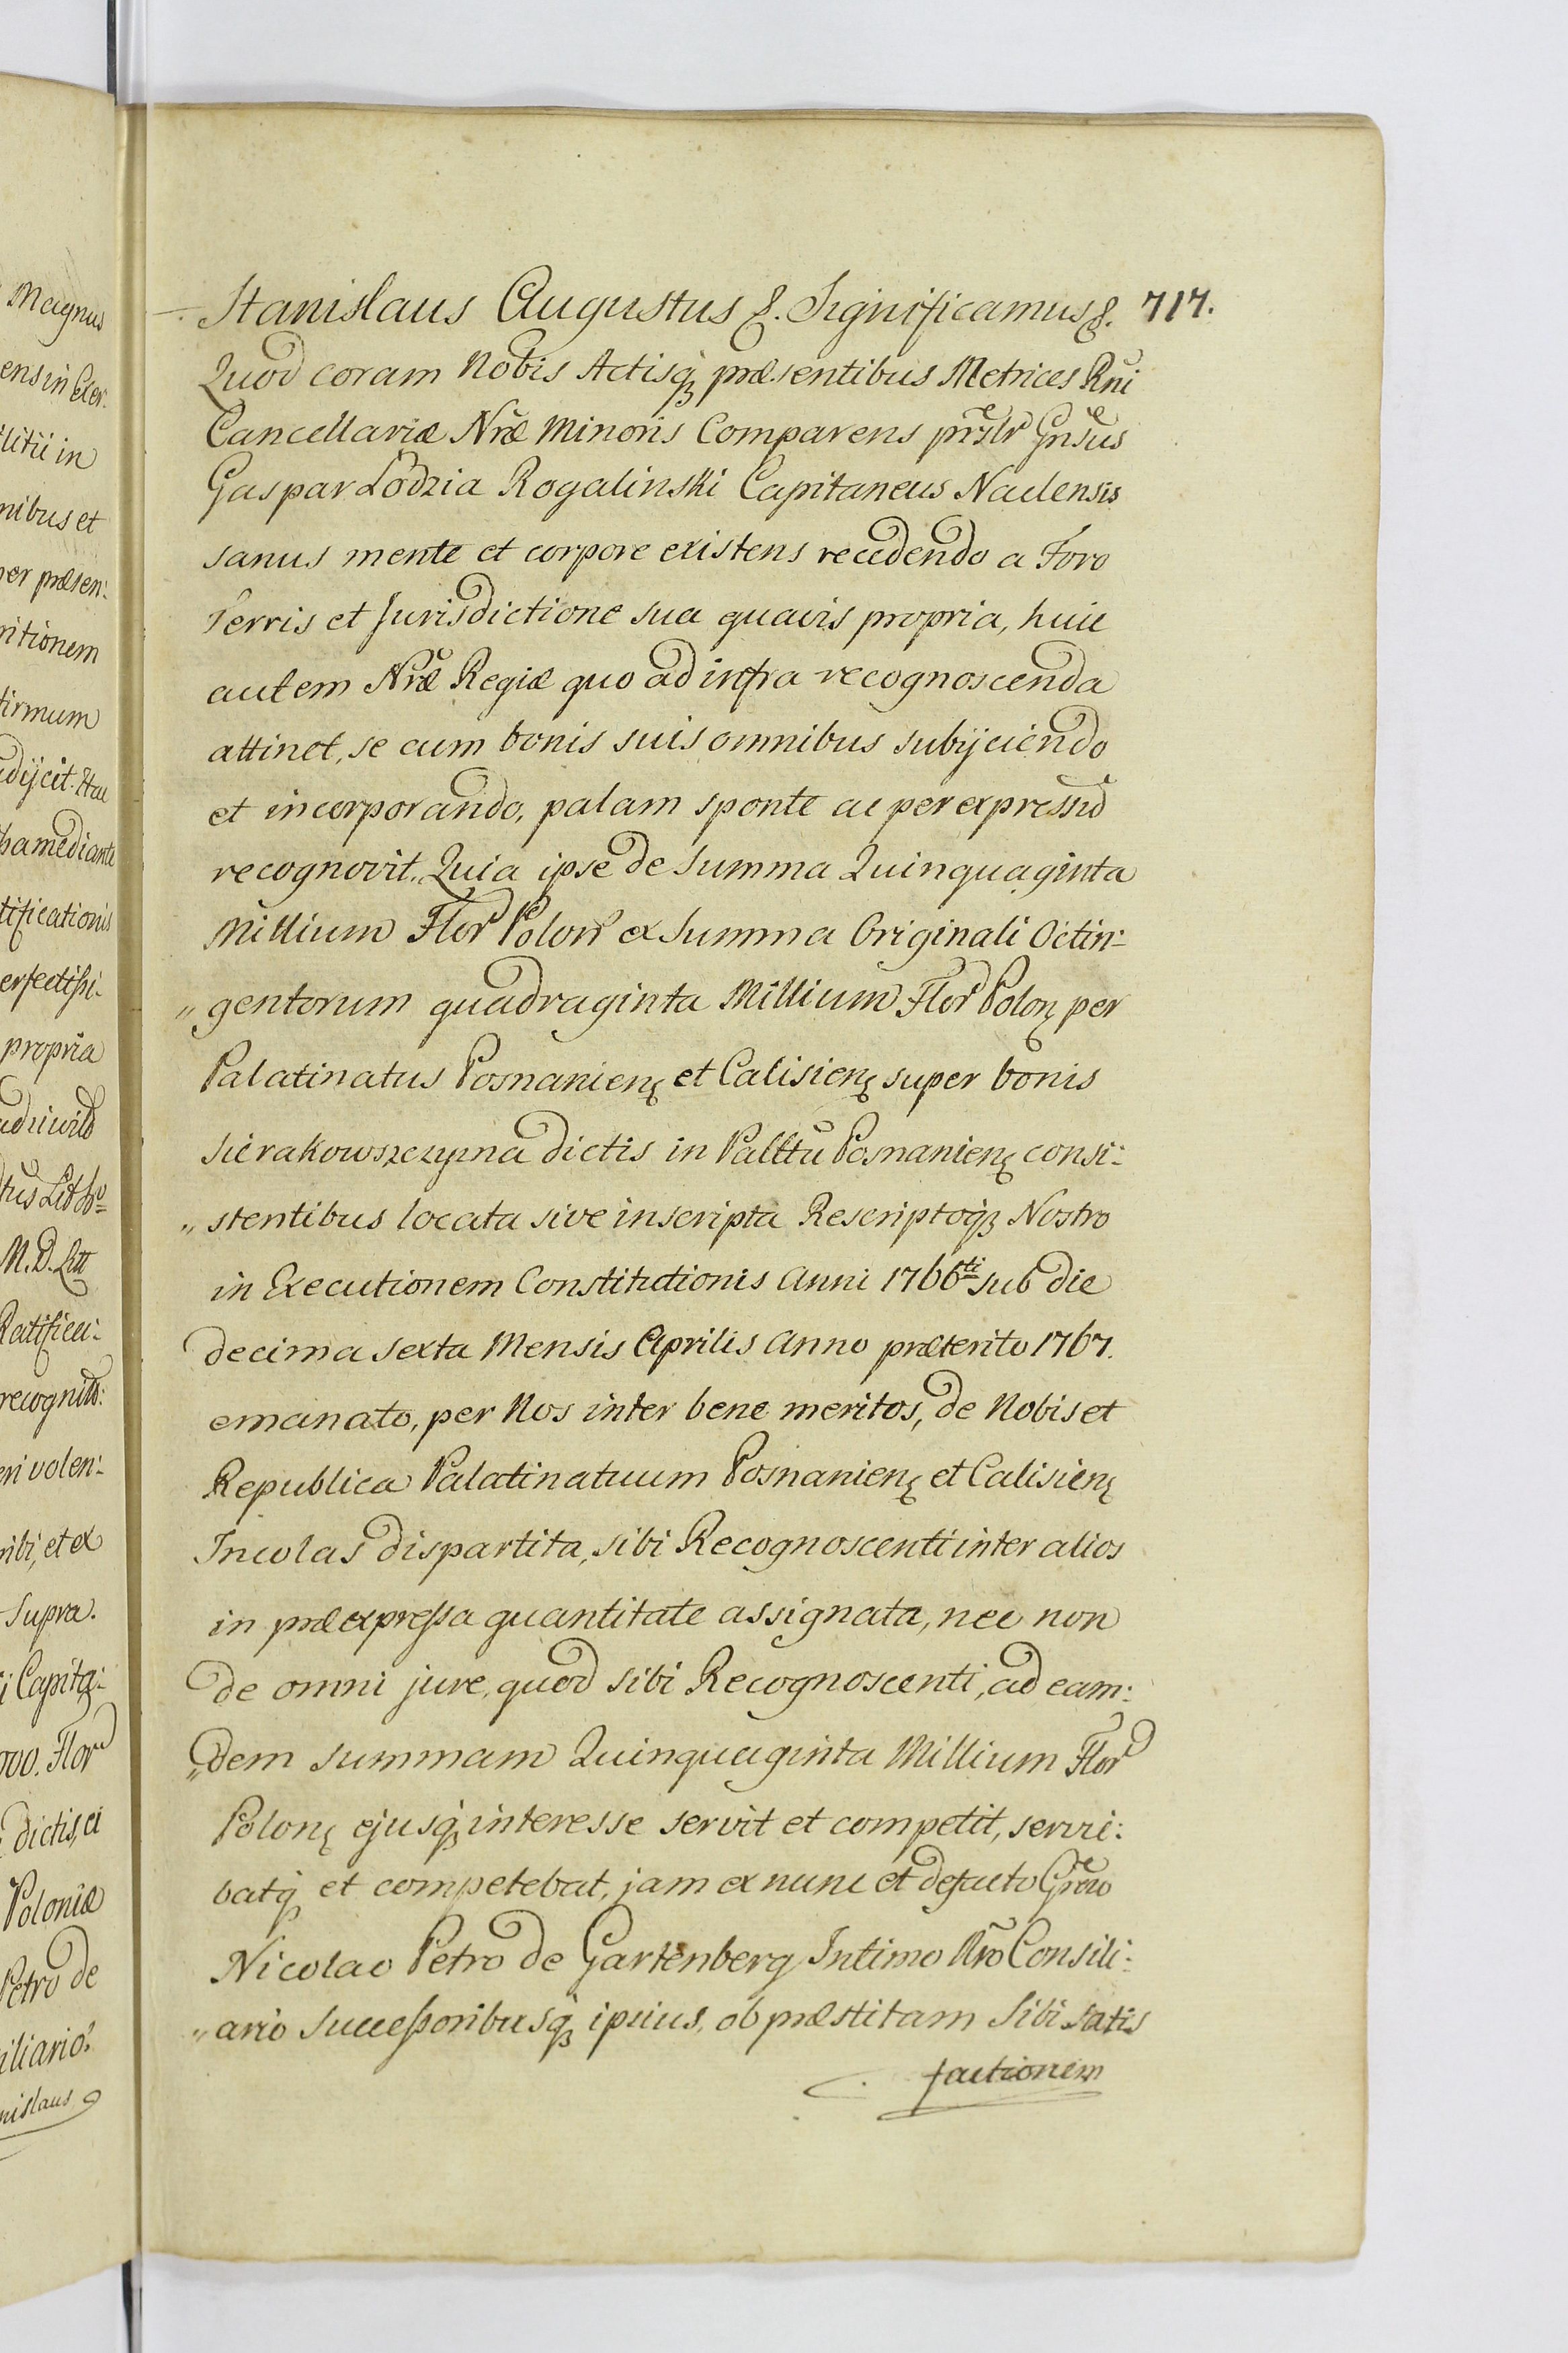 Magnus
ens in Exer:
litii in
nibus et
per præsen:
ritionem
firmum
adijcit. Hac
mediante
tificationis
erfectissi-
propria
M. D. Litt
Ratifica:
recognit:
eri volen:
ribi, et ex
Supra.
i Capita:
000. Flor
dictis, ei
Poloniæ
Petro de
iliario.
nislaus
Stanislaus Augustus &. Significamus &. 717.
Quod coram Nobis Actisq; præsentibus Metrices Rñi
Cancellariæ Nræ Minoris Comparens prslr Gnsus
Gaspar Lodzia Rogalinski Capitaneus Naclensis
sanus mente et corpore existens recedendo a Foro
Terris et Jurisdictione sua quavis propria, huic
autem Nræ Regiæ quo ad infra recognoscenda
attinet, se cum bonis suis omnibus subijciendo
et incorporando, palam sponte ac per expressũ
recognovit. Quia ipse de Summa Quinquaginta
Millium Flor Polon ex Summa Originali Octin:
„ gentorum quadraginta Millium Flor Polon; per
Palatinatus Posnanien; et Calisien; super bonis
Sierakowszczyzna dictis in Palttu Posnanien; consi:
„ stentibus locata sive inscripta Rescriptoq; Nostro
in Executionem Constitutionis Anni 1766ti sub die
decima sexta Mensis Aprilis Anno præterito 1767.
emanato, per Nos inter bene meritos, de Nobis et
Republica Palatinatuum Posnanien; et Calisien;
Incolas dispartita, sibi Recognoscenti inter alios
in præexpressa quantitate assignata, nec non
de omni jure, quod sibi Recognoscenti, ad eam:
„ dem summam Quinquaginta Millium Flor
Polon; ejusq; interesse servit et competit, servi:
batq; et competebat, jam ex nunc et defacto Grero
Nicolao Petro de Gartenberg Intimo Nro Consili:
„ ario Successoribusq; ipsius, ob præstitam sibi satis
factionem